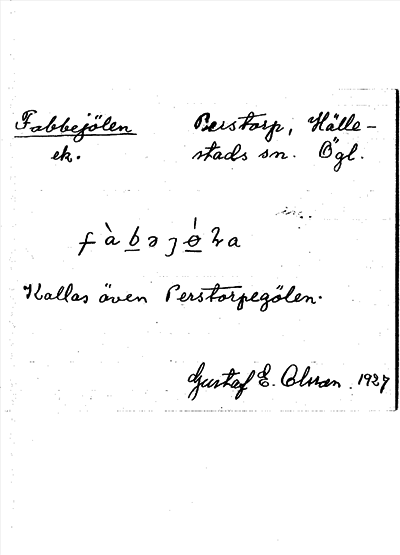 Fabbejölen Perstorp, Hälle-
ek. stads sn. Ögl.
fàbəȷöla
Kallas även Perstorpegölen.
Gustaf E. Olsson. 1927